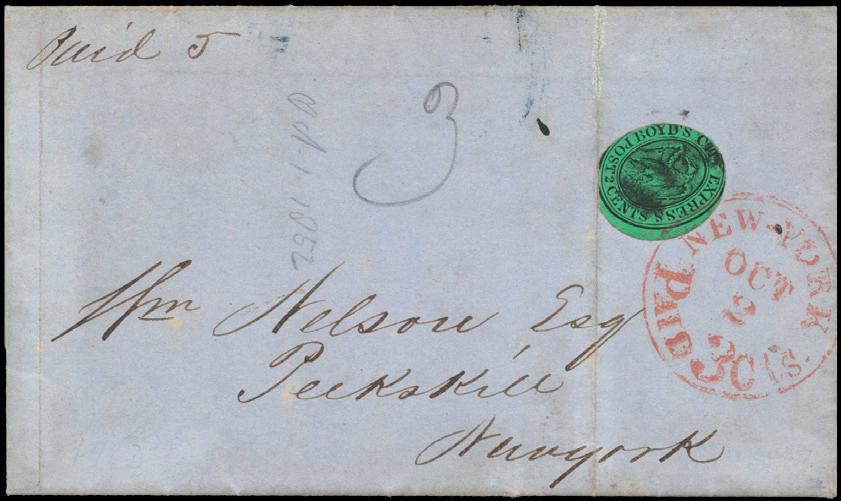 Paid 5
3
Oct 1 1852
BOYD'S CITY EXPRESS POST 2 CENTS
NEW-YORK
OCT
2
PAID 3 Cts.
Wm Nelson Esq
Peekskill
Newyork